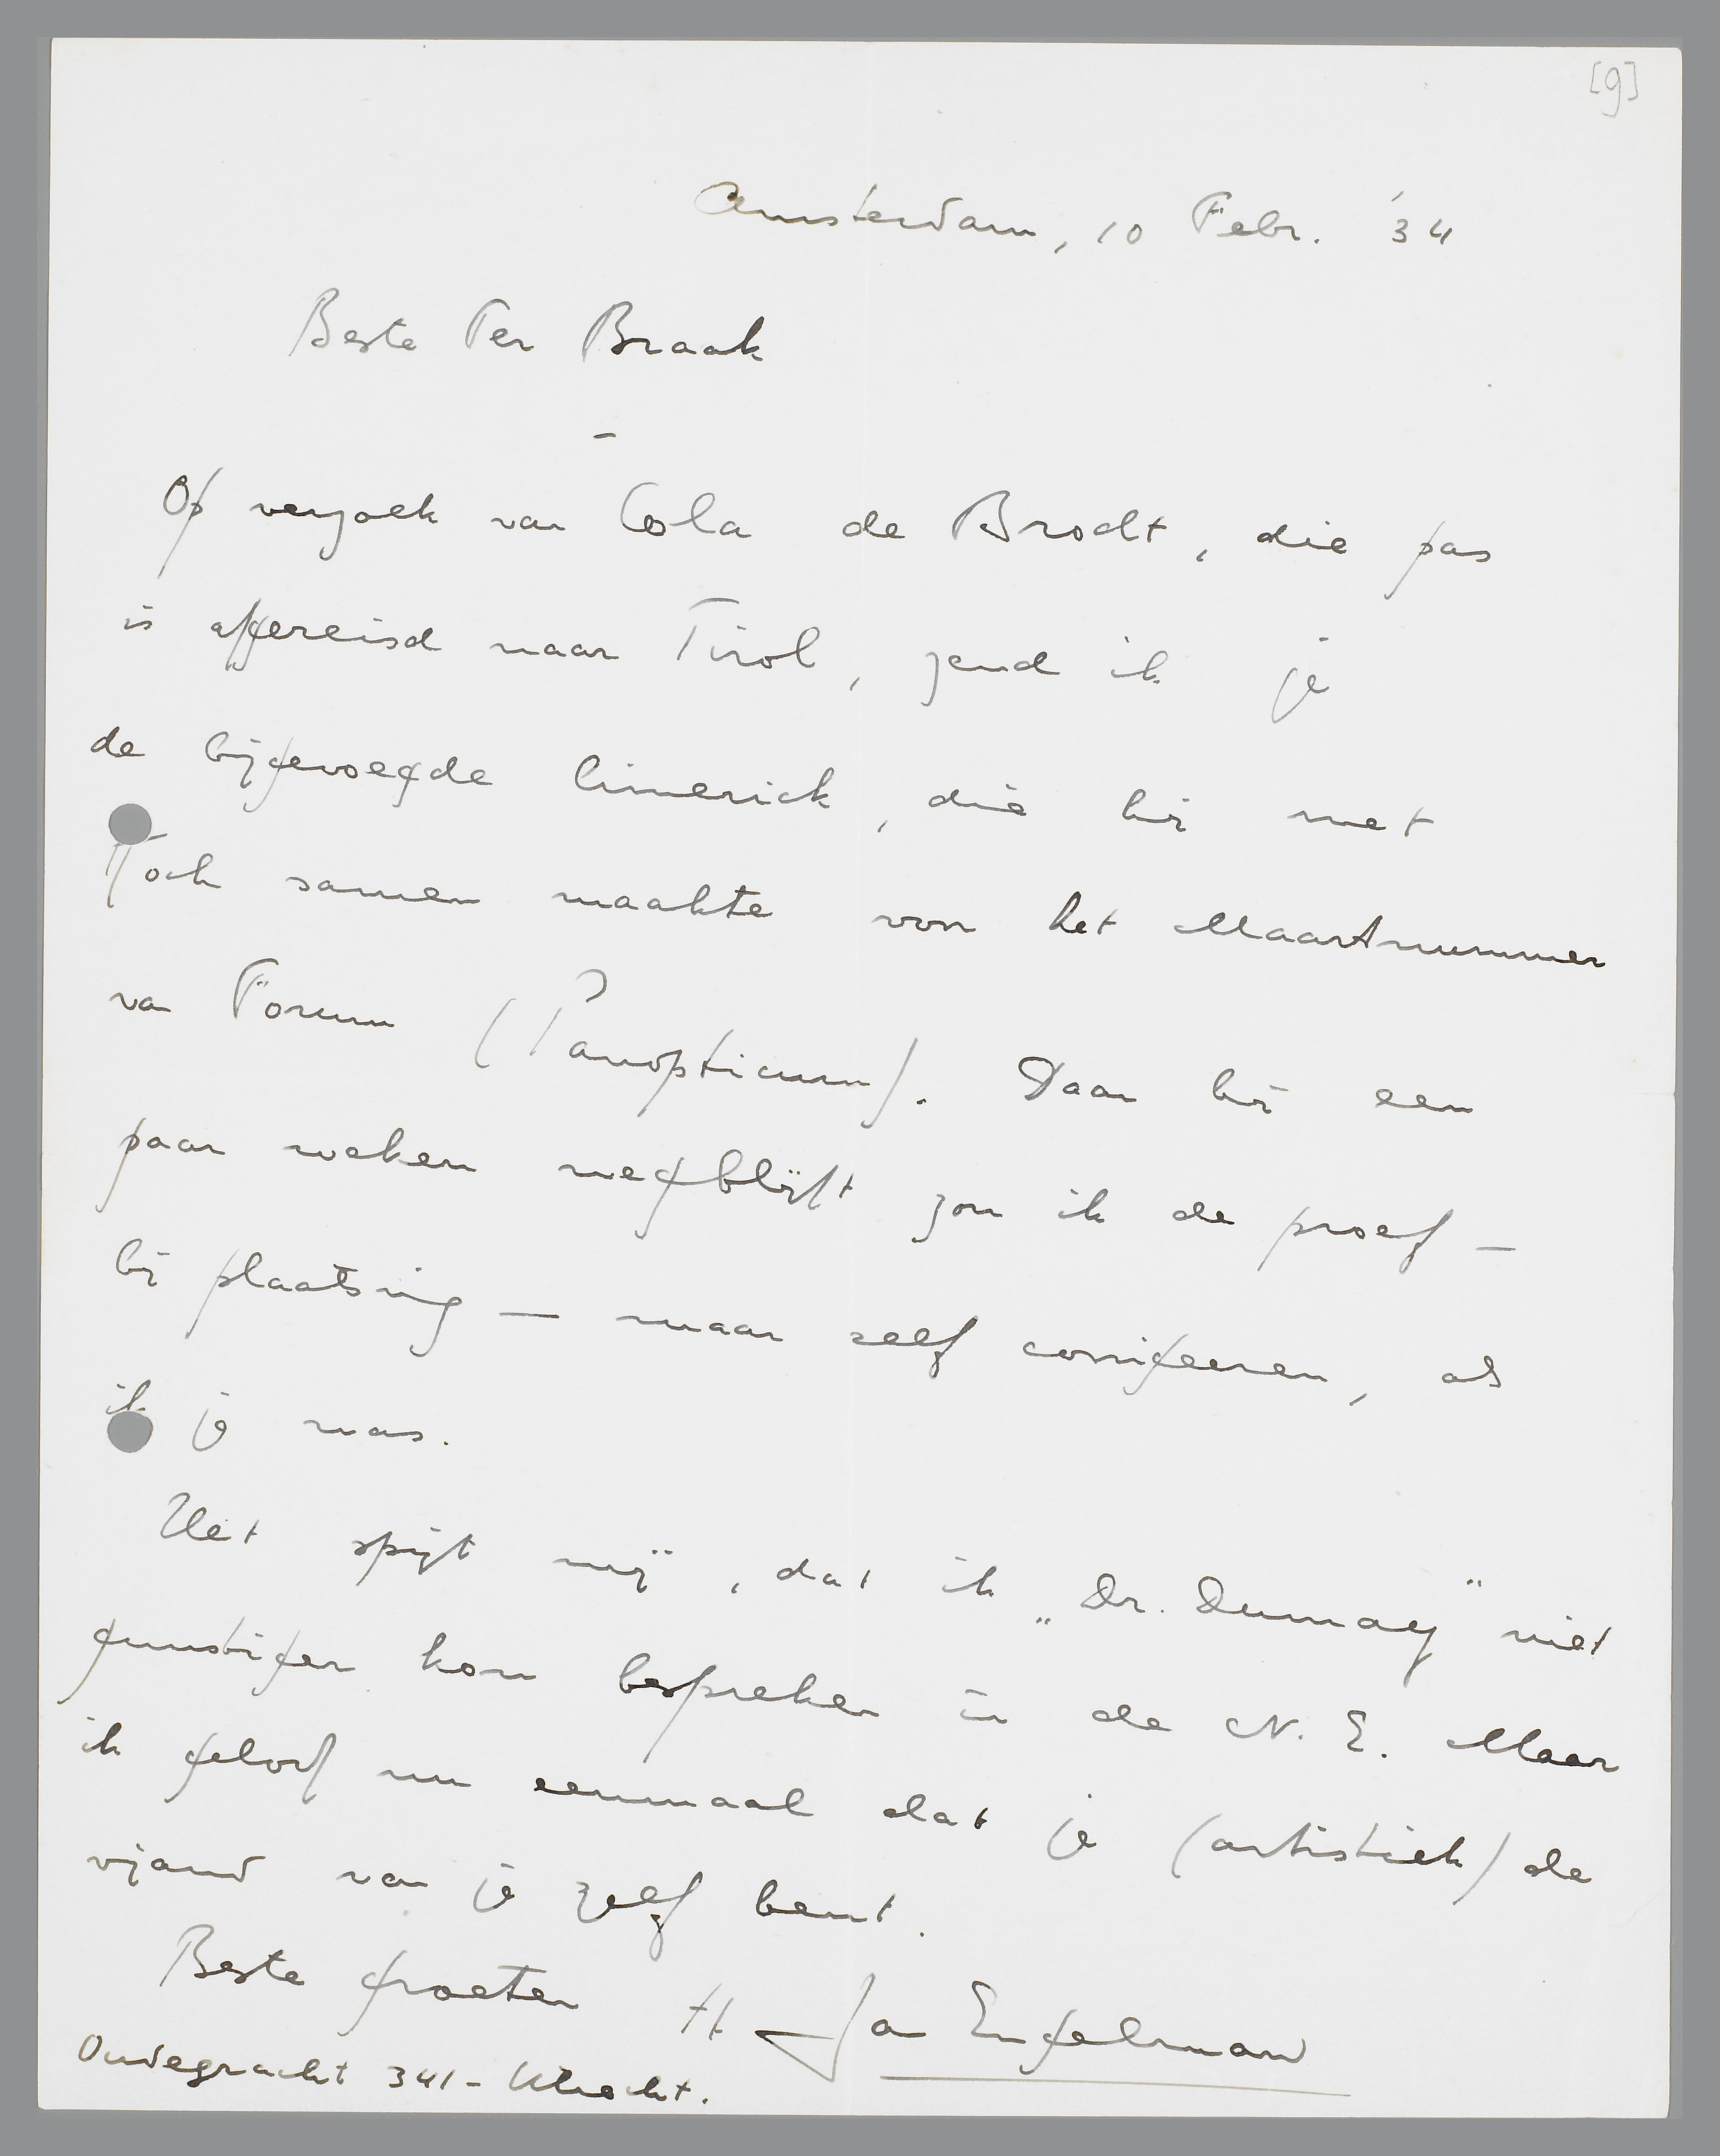 [9]
Amsterdam, 10 Febr. '34
Beste Ter Braak
–
Op verzoek van Cola de Brodt, die pas
is afgereisd naar Tirol, zend ik je
de bijgevoegde limerick, die hij met
Toch samen maakte voor het Maartnummer
van Forum (Panopticum). Daar hij een
paar weken wegblijft zou ik de proef –
bij plaatsing – maar zelf corrigeeren, als
ik je was.
Het spijt mij, dat ik „Dr. Dumay" niet
gunstiger kon bespreken in de N. E. Maar
ik geloof nu eenmaal dat je (artistiek) de
vijand van je zelf bent.
Beste groeten tt Jan Engelman
Oudegracht 341 - Utrecht.